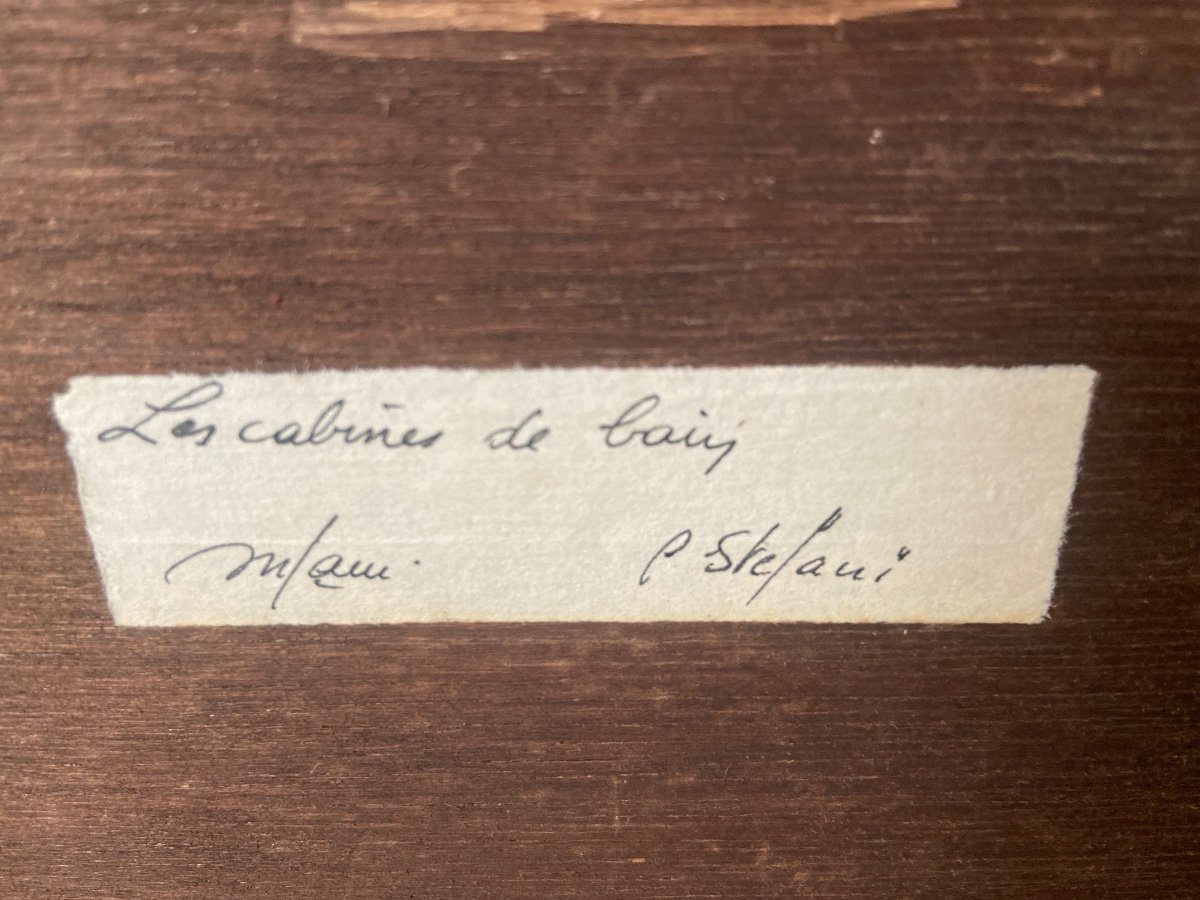 Les cabines de bain
P Stefani